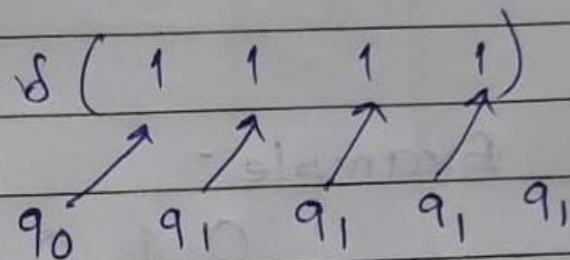 δ ( 1 1 1 1 )
q0 q1 q1 q1 q1